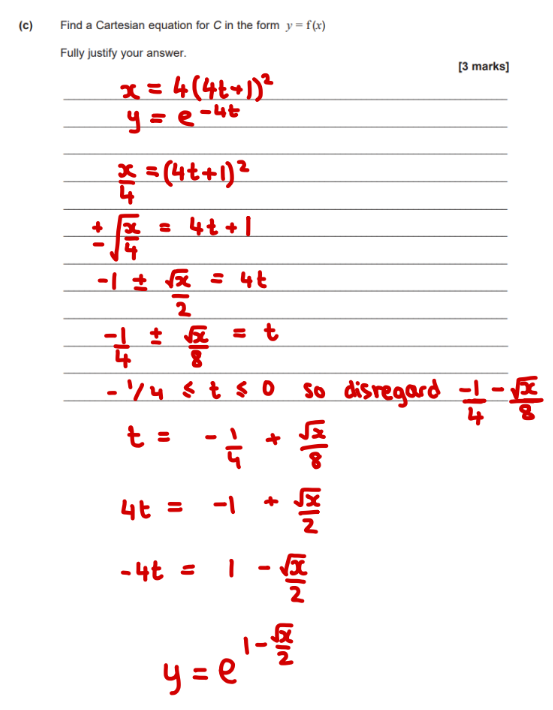 (c) Find a Cartesian equation for C in the form y = f(x)
Fully justify your answer.
[3 marks]
x = 4(4t+1)²
y = e^(-4t)
x/4 = (4t+1)²
±√(x/4) = 4t+1
-1 ± √x/2 = 4t
-1/4 ± √x/8 = t
-1/4 ≤ t ≤ 0 so disregard -1/4 - √x/8
t = -1/4 + √x/8
4t = -1 + √x/2
-4t = 1 - √x/2
y = e^(1-√x/2)